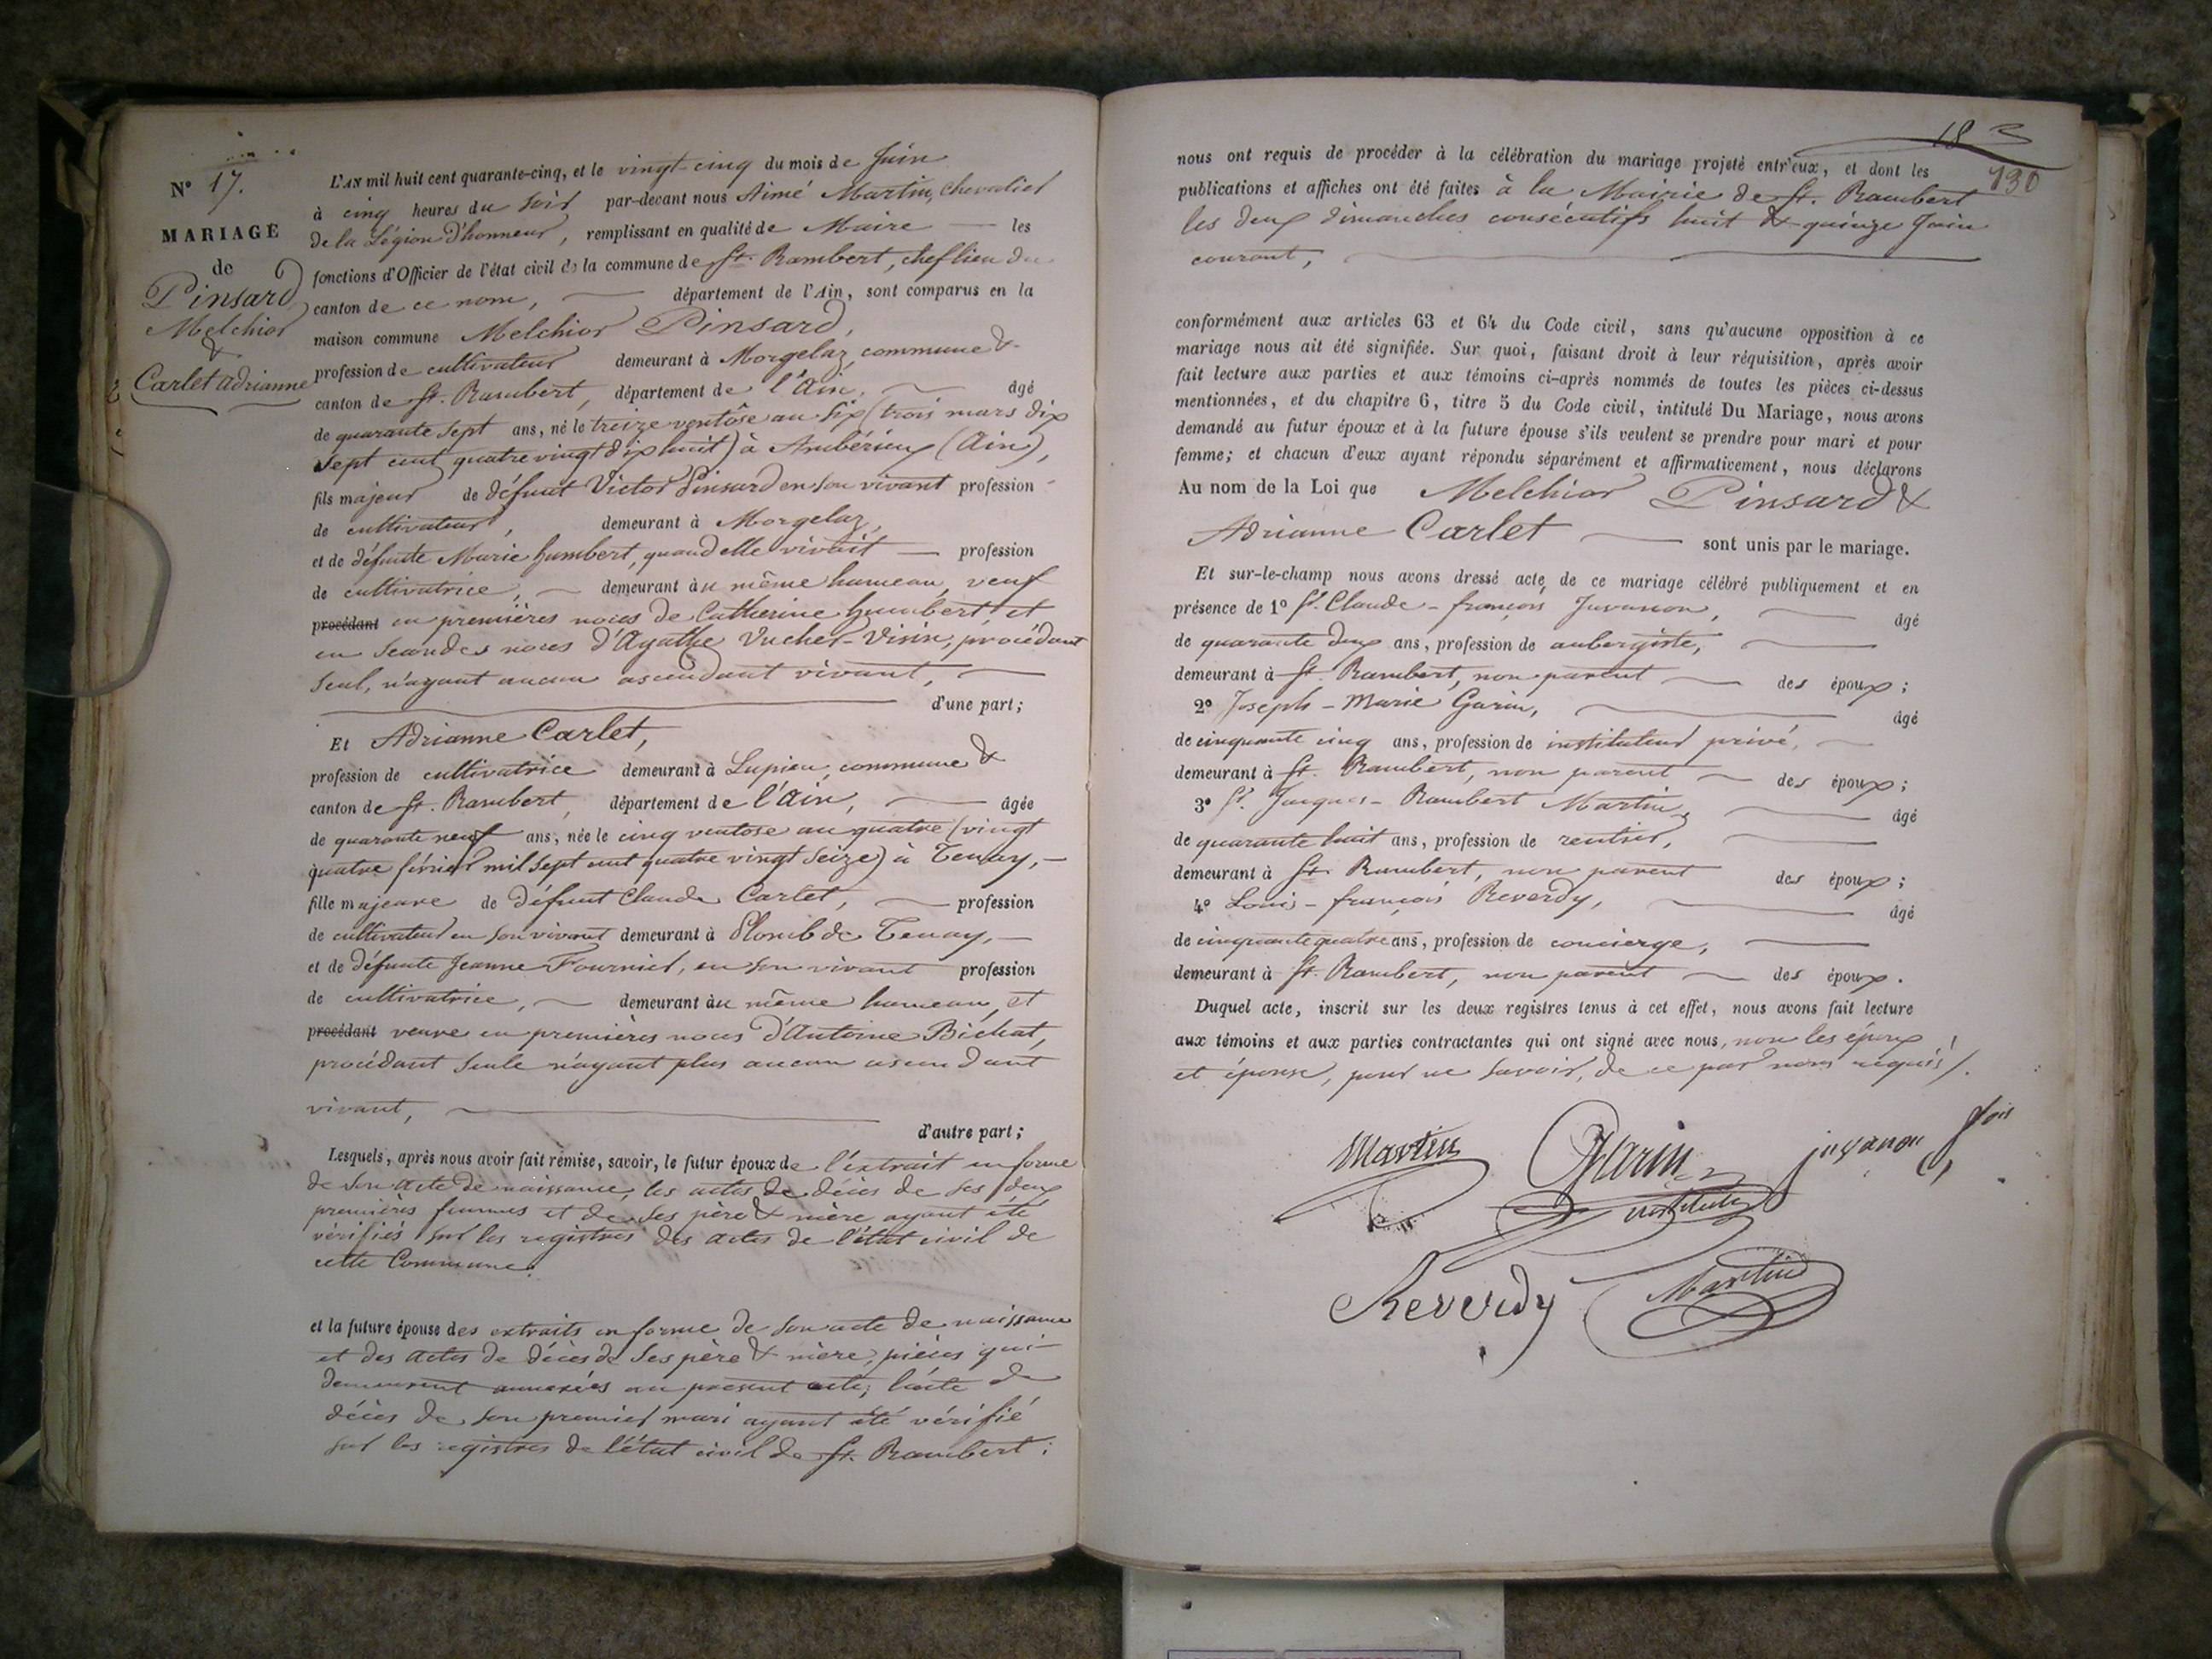 N° 17.
MARIAGE
de
Pinsard
Melchior
&
Carlet Adrianne
L'AN mil huit cent quarante-cinq, et le vingt-cinq du mois de Juin
à cinq heures du soir par-devant nous Aimé Martin, Chevalier
de la Légion d'honneur, remplissant en qualité de Maire les
fonctions d'Officier de l'état civil de la commune de St. Rambert, chef lieu du
canton de ce nom, département de l'Ain, sont comparus en la
maison commune Melchior Pinsard,
profession de cultivateur demeurant à Morgelaz, commune &
canton de St. Rambert, département de l'Ain, âgé
de quarante sept ans, né le treize ventôse an six (trois mars dix
sept cent quatre vingt dix huit) à Ambérieux (Ain),
fils majeur de défunt Victor Pinsard en son vivant profession
de cultivateur, demeurant à Morgelaz,
et de défunte Marie humbert, quand elle vivait profession
de cultivatrice, demeurant au même hameau, veuf
procédant en premières noces de Catherine humbert, et
en secondes noces d'Agathe Vucher-Visin, procédant
seul, n'ayant aucun ascendant vivant,
d'une part;
Et Adrianne Carlet,
profession de cultivatrice demeurant à Lupieu, commune &
canton de St. Rambert, département de l'Ain, âgée
de quarante neuf ans, née le cinq ventose an quatre (vingt
quatre février mil sept cent quatre vingt seize) à Tenay,
fille majeure de défunt Claude Carlet, profession
de cultivateur en son vivant demeurant à Plomb de Tenay,
et de défunte Jeanne Fournier, en son vivant profession
de cultivatrice, demeurant au même hameau, et
procédant veuve en premières noces d'Antoine Bichat,
procédant seule n'ayant plus aucun ascendant
vivant,
d'autre part;
Lesquels, après nous avoir fait remise, savoir, le futur époux de l'extrait en forme
de son acte de naissance, les actes de décès de ses deux
premières femmes et de ses père & mère ayant été
vérifiés sur les registres des actes de l'état civil de
cette Commune.
et la future épouse des extraits en forme de son acte de naissance
et des actes de décès de ses père & mère, pièces qui
demeurent annexées au présent acte; l'acte de
décès de son premier mari ayant été vérifié
sur les registres de l'état civil de St. Rambert;
183
130
nous ont requis de procéder à la célébration du mariage projeté entr'eux, et dont les
publications et affiches ont été faites à la Mairie de St. Rambert
les deux dimanches consécutifs huit & quinze Juin
courant,
conformément aux articles 63 et 64 du Code civil, sans qu'aucune opposition à ce
mariage nous ait été signifiée. Sur quoi, faisant droit à leur réquisition, après avoir
fait lecture aux parties et aux témoins ci-après nommés de toutes les pièces ci-dessus
mentionnées, et du chapitre 6, titre 5 du Code civil, intitulé Du Mariage, nous avons
demandé au futur époux et à la future épouse s'ils veulent se prendre pour mari et pour
femme; et chacun d'eux ayant répondu séparément et affirmativement, nous déclarons
Au nom de la Loi que Melchior Pinsard &
Adrianne Carlet sont unis par le mariage.
Et sur-le-champ nous avons dressé acte de ce mariage célébré publiquement et en
présence de 1° Sr. Claude-françois Juvanon, âgé
de quarante deux ans, profession de aubergiste,
demeurant à St. Rambert, non parent des époux;
2° Joseph-Marie Garin, âgé
de cinquante cinq ans, profession de instituteur privé,
demeurant à St. Rambert, non parent des époux;
3° Sr. Jacques-Rambert Martin, âgé
de quarante huit ans, profession de rentier,
demeurant à St. Rambert, non parent des époux;
4° Louis-françois Reverdy, âgé
de cinquante quatre ans, profession de concierge,
demeurant à St. Rambert, non parent des époux.
Duquel acte, inscrit sur les deux registres tenus à cet effet, nous avons fait lecture
aux témoins et aux parties contractantes qui ont signé avec nous, non les époux
et épouse, pour ne savoir, de ce par nous requis/.
Martin Garin juvanon fois
institut
Reverdy Martin